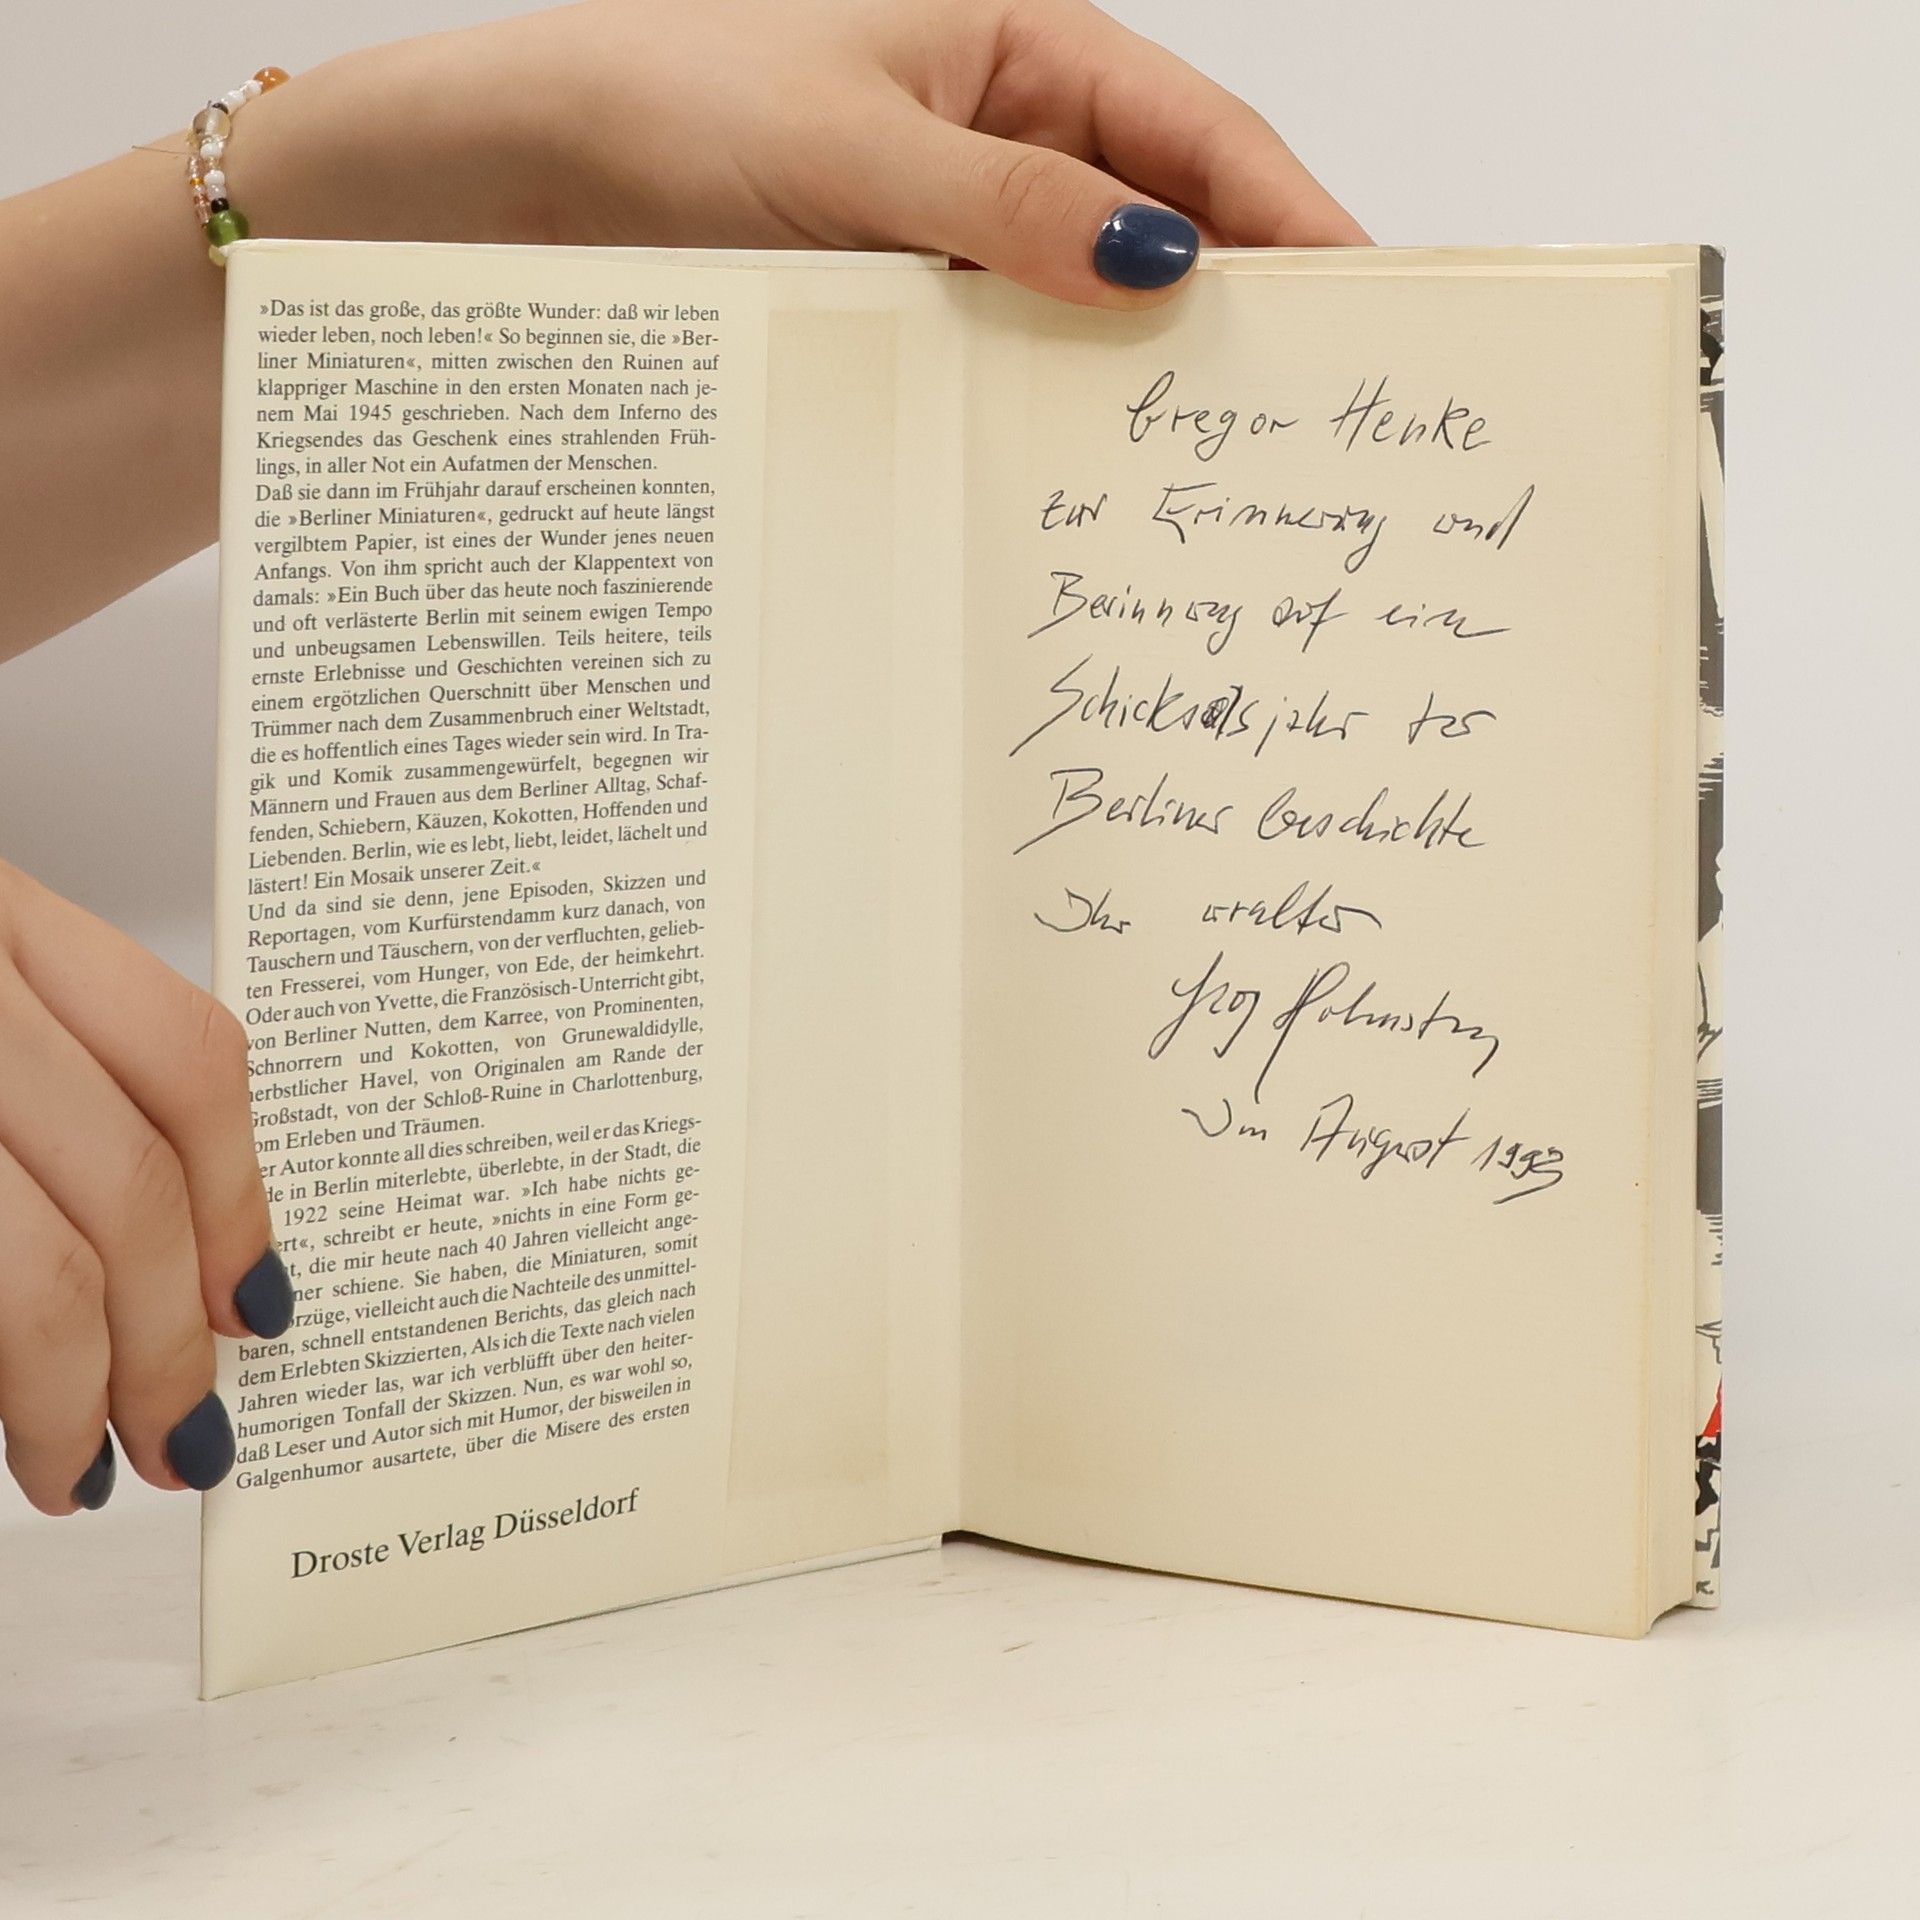 »Das ist das große, das größte Wunder: daß wir leben
wieder leben, noch leben!« So beginnen sie, die »Ber-
liner Miniaturen«, mitten zwischen den Ruinen auf
klappriger Maschine in den ersten Monaten nach je-
nem Mai 1945 geschrieben. Nach dem Inferno des
Kriegsendes das Geschenk eines strahlenden Früh-
lings, in aller Not ein Aufatmen der Menschen.
Daß sie dann im Frühjahr darauf erscheinen konnten,
die »Berliner Miniaturen«, gedruckt auf heute längst
vergilbtem Papier, ist eines der Wunder jenes neuen
Anfangs. Von ihm spricht auch der Klappentext von
damals: »Ein Buch über das heute noch faszinierende
und oft verlästerte Berlin mit seinem ewigen Tempo
und unbeugsamen Lebenswillen. Teils heitere, teils
ernste Erlebnisse und Geschichten vereinen sich zu
einem ergötzlichen Querschnitt über Menschen und
Trümmer nach dem Zusammenbruch einer Weltstadt,
die es hoffentlich eines Tages wieder sein wird. In Tra-
gik und Komik zusammengewürfelt, begegnen wir
Männern und Frauen aus dem Berliner Alltag, Schaf-
fenden, Schiebern, Käuzen, Kokotten, Hoffenden und
Liebenden. Berlin, wie es lebt, liebt, leidet, lächelt und
lästert! Ein Mosaik unserer Zeit.«
Und da sind sie denn, jene Episoden, Skizzen und
Reportagen, vom Kurfürstendamm kurz danach, von
Tauschern und Täuschern, von der verfluchten, gelieb-
ten Fresserei, vom Hunger, von Ede, der heimkehrt.
Oder auch von Yvette, die Französisch-Unterricht gibt,
von Berliner Nutten, dem Karree, von Prominenten,
Schnorrern und Kokotten, von Grunewaldidylle,
herbstlicher Havel, von Originalen am Rande der
Großstadt, von der Schloß-Ruine in Charlottenburg,
om Erleben und Träumen.
er Autor konnte all dies schreiben, weil er das Kriegs-
de in Berlin miterlebte, überlebte, in der Stadt, die
1922 seine Heimat war. »Ich habe nichts ge-
ert«, schreibt er heute, »nichts in eine Form ge-
t, die mir heute nach 40 Jahren vielleicht ange-
ner schiene. Sie haben, die Miniaturen, somit
orzüge, vielleicht auch die Nachteile des unmittel-
baren, schnell entstandenen Berichts, das gleich nach
dem Erlebten Skizzierten, Als ich die Texte nach vielen
Jahren wieder las, war ich verblüfft über den heiter-
humorigen Tonfall der Skizzen. Nun, es war wohl so,
daß Leser und Autor sich mit Humor, der bisweilen in
Galgenhumor ausartete, über die Misere des ersten
Droste Verlag Düsseldorf
Gregor Henke
zur Erinnerung und
Besinnung auf ein
Schicksalsjahr der
Berliner Geschichte
Ihr uralter
Holmsten
Im August 1993